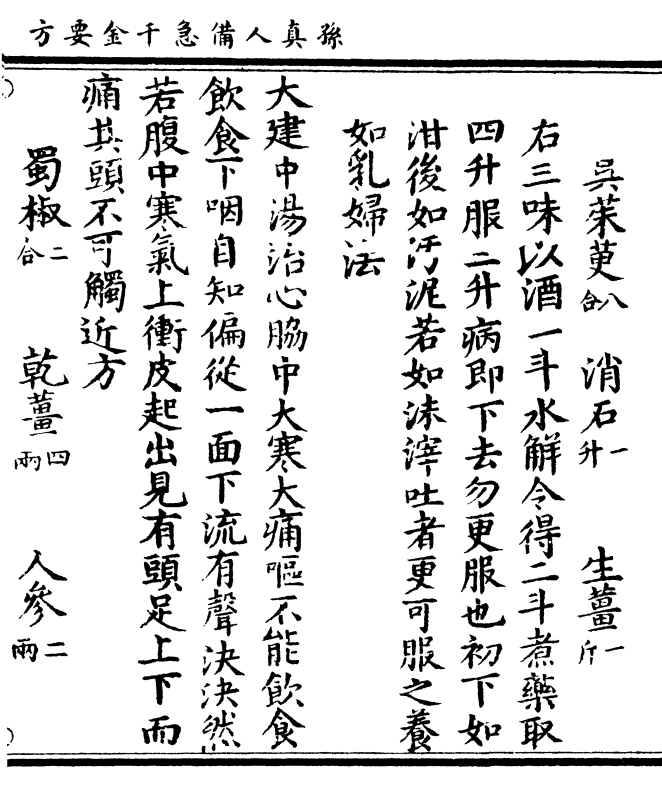 孫真人備急千金要方
吳茱萸八合　消石一升　生薑一斤
右三味以酒一斗水解令得二斗煮藥取
四升服二升病即下去勿更服也初下如
泔後如汚泥若如沫滓吐者更可服之養
如乳婦法
大建中湯治心脇中大寒大痛嘔不能飲食
飲食下咽自知偏從一面下流有聲決決然
若腹中寒氣上衝皮起出見有頭足上下而
痛其頭不可觸近方
蜀椒二合　乾薑四兩　人參二兩